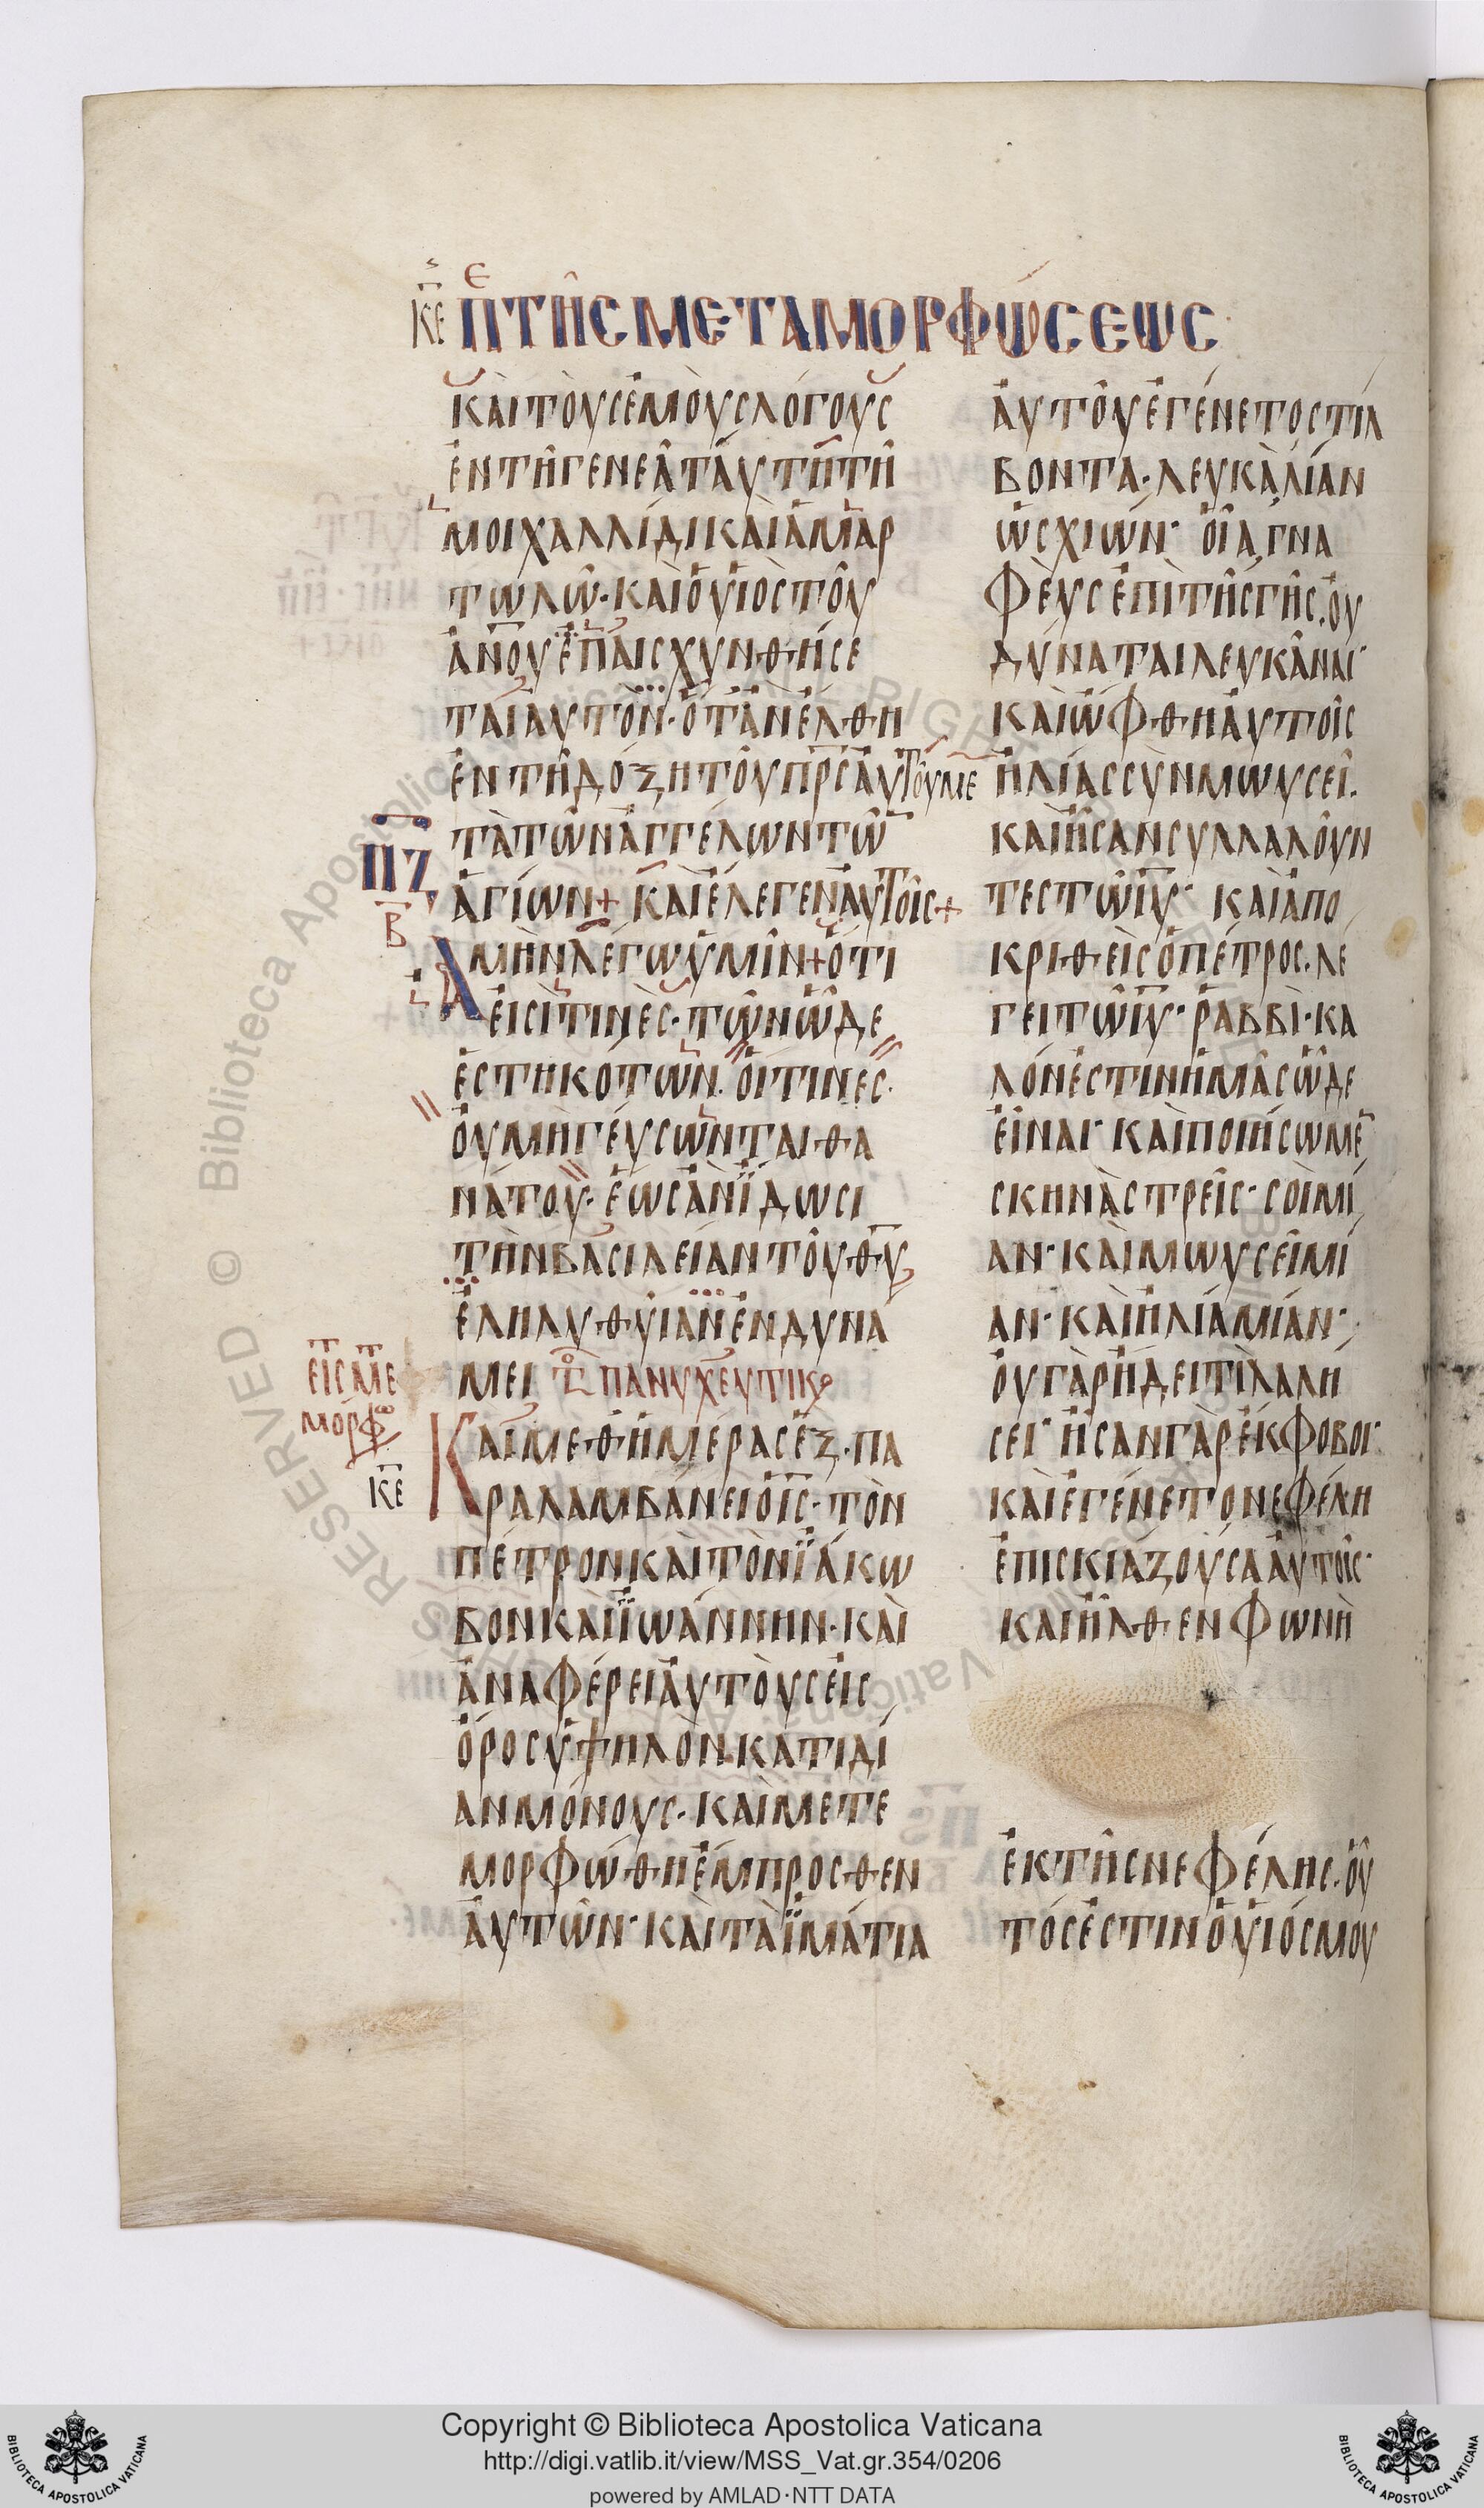 ΚΕ ΠΤΗΣ ΜΕΤΑΜΟΡΦΩΣΕΩΣ
ΚΑΙ ΤΟΥΣ ΕΜΟΥΣ ΛΟΓΟΥΣ
ΕΝ ΤΗ ΓΕΝΕΑ ΤΑΥΤΗ ΤΗ
ΜΟΙΧΑΛΛΙΔΙ ΚΑΙ ΑΜΑΡ
ΤΩΛΩ· ΚΑΙ Ο ΥΙΟΣ ΤΟΥ
ΑΝΟΥ ΕΠΑΙΣΧΥΝΘΗΣΕ
ΤΑΙ ΑΥΤΟΝ· ΟΤΑΝ ΕΛΘΗ
ΕΝ ΤΗ ΔΟΞΗ ΤΟΥ ΠΡΣ ΑΥΤΟΥ ΜΕ
ΤΑ ΤΩΝ ΑΓΓΕΛΩΝ ΤΩ
ΠΖ
Β
ΑΓΙΩΝ+ ΚΑΙ ΕΛΕΓΕΝ ΑΥΤΟΙΣ+
ΑΜΗΝ ΛΕΓΩ ΥΜΙΝ+ΟΤΙ
ΕΙΣΙ ΤΙΝΕΣ· ΤΩΝ ΩΔΕ
ΕΣΤΗΚΟΤΩΝ. ΟΙΤΙΝΕΣ·
ΟΥ ΜΗ ΓΕΥΣΩΝΤΑΙ ΘΑ
ΝΑΤΟΥ· ΕΩΣ ΑΝ ΪΔΩΣΙ
ΤΗΝ ΒΑΣΙΛΕΙΑΝ ΤΟΥ ΘΥ
ΕΛΗΛΥΘΥΙΑΝ ΕΝ ΔΥΝΑ
ΜΕΙ ΠΑΝΥΧΕΥΤΙΚ
ΕΙΣ Τ ΜΕΤ
ΜΟΡΦ
ΚΕ
ΚΑΙ ΜΕΘ ΗΜΕΡΑΣ ΕΞ· ΠΑ
ΡΑΛΑΜΒΑΝΕΙ Ο ΙΣ· ΤΟΝ
ΠΕΤΡΟΝ ΚΑΙ ΤΟΝ ΪΑΚΩ
ΒΟΝ ΚΑΙ ΪΩΑΝΝΗΝ· ΚΑΙ
ΑΝΑΦΕΡΕΙ ΑΥΤΟΥΣ ΕΙΣ
ΟΡΟΣ ΥΨΗΛΟΝ ΚΑΤ ΙΔΙ
ΑΝ ΜΟΝΟΥΣ· ΚΑΙ ΜΕΤΕ
ΜΟΡΦΩΘΗ ΕΜΠΡΟΣΘΕΝ
ΑΥΤΩΝ· ΚΑΙ ΤΑ ΪΜΑΤΙΑ
ΑΥΤΟΥ ΕΓΕΝΕΤΟ ΣΤΙΛ
ΒΟΝΤΑ· ΛΕΥΚΑ ΛΙΑΝ
ΩΣ ΧΙΩΝ· ΟΙΑ ΓΝΑ
ΦΕΥΣ ΕΠΙ ΤΗΣ ΓΗΣ· ΟΥ
ΔΥΝΑΤΑΙ ΛΕΥΚΑΝΑΙ·
ΚΑΙ ΩΦΘΗ ΑΥΤΟΙΣ
ΗΛΙΑΣ ΣΥΝ ΜΩΥΣΕΙ.
ΚΑΙ ΗΣΑΝ ΣΥΛΛΑΛΟΥΝ
ΤΕΣ ΤΩ ΙΥ· ΚΑΙ ΑΠΟ
ΚΡΙΘΕΙΣ Ο ΠΕΤΡΟΣ· ΛΕ
ΓΕΙ ΤΩ ΙΥ· ΡΑΒΒΙ· ΚΑ
ΛΟΝ ΕΣΤΙΝ ΗΜΑΣ ΩΔΕ
ΕΙΝΑΙ· ΚΑΙ ΠΟΙΗΣΩΜΕ
ΣΚΗΝΑΣ ΤΡΕΙΣ· ΣΟΙ ΜΙ
ΑΝ· ΚΑΙ ΜΩΥΣΕΙ ΜΙ
ΑΝ· ΚΑΙ ΗΛΙΑ ΜΙΑΝ·
ΟΥ ΓΑΡ ΗΔΕΙ ΤΙ ΛΑΛΗ
ΣΕΙ· ΗΣΑΝ ΓΑΡ ΕΚΦΟΒΟΙ·
ΚΑΙ ΕΓΕΝΕΤΟ ΝΕΦΕΛΗ
ΕΠΙΣΚΙΑΖΟΥΣΑ ΑΥΤΟΙΣ·
ΚΑΙ ΗΛΘΕΝ ΦΩΝΗ
ΕΚ ΤΗΣ ΝΕΦΕΛΗΣ· ΟΥ
ΤΟΣ ΕΣΤΙΝ Ο ΥΙΟΣ ΜΟΥ
Copyright © Biblioteca Apostolica Vaticana
http://digi.vatlib.it/view/MSS_Vat.gr.354/0206
powered by AMLAD·NTT DATA
BIBLIOTECA APOSTOLICA VATICANA
BIBLIOTECA APOSTOLICA VATICANA